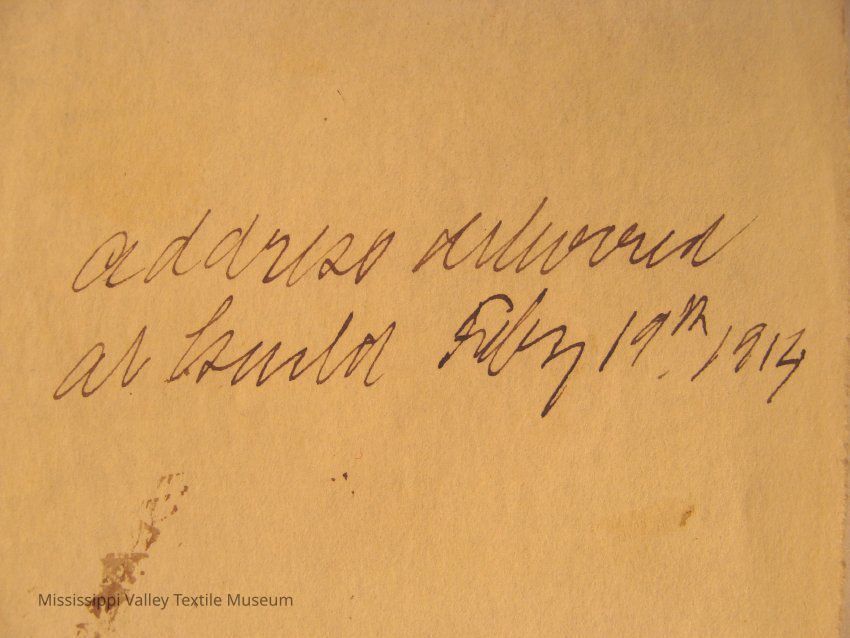 address delivered
at Guild Feby 19th 1914
Mississippi Valley Textile Museum